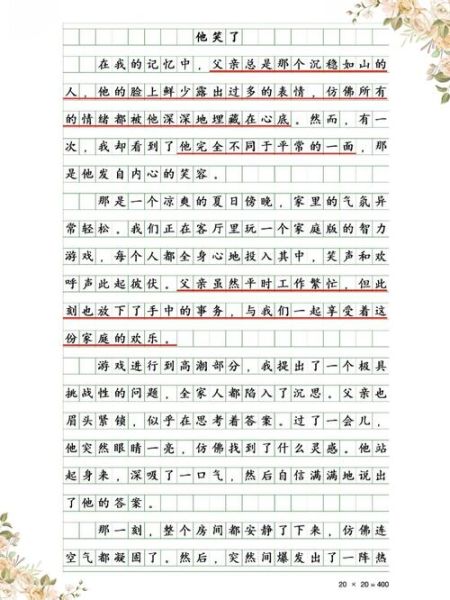 他笑了
在我的记忆中，父亲总是那个沉稳如山的
人，他的脸上鲜少露出过多的表情，仿佛所有
的情绪都被他深深地埋藏在心底。然而，有一
次，我却看到了他完全不同于平常的一面，那
是他发自内心的笑容。
那是一个凉爽的夏日傍晚，家里的气氛异
常轻松。我们正在客厅里玩一个家庭版的智力
游戏，每个人都全身心地投入其中，笑声和欢
呼声此起彼伏。父亲虽然平时工作繁忙，但此
刻也放下了手中的事务，与我们一起享受着这
份家庭的欢乐。
游戏进行到高潮部分，我提出了一个极具
挑战性的问题，全家人都陷入了沉思。父亲也
眉头紧锁，似乎在思考着答案。过了一会儿，
他突然眼睛一亮，仿佛找到了什么灵感。他站
起身来，深吸了一口气，然后自信满满地说出
了他的答案。
那一刻，整个房间都安静了下来，仿佛连
空气都凝固了。然后，突然间爆发出了一阵热
20 × 20 = 400